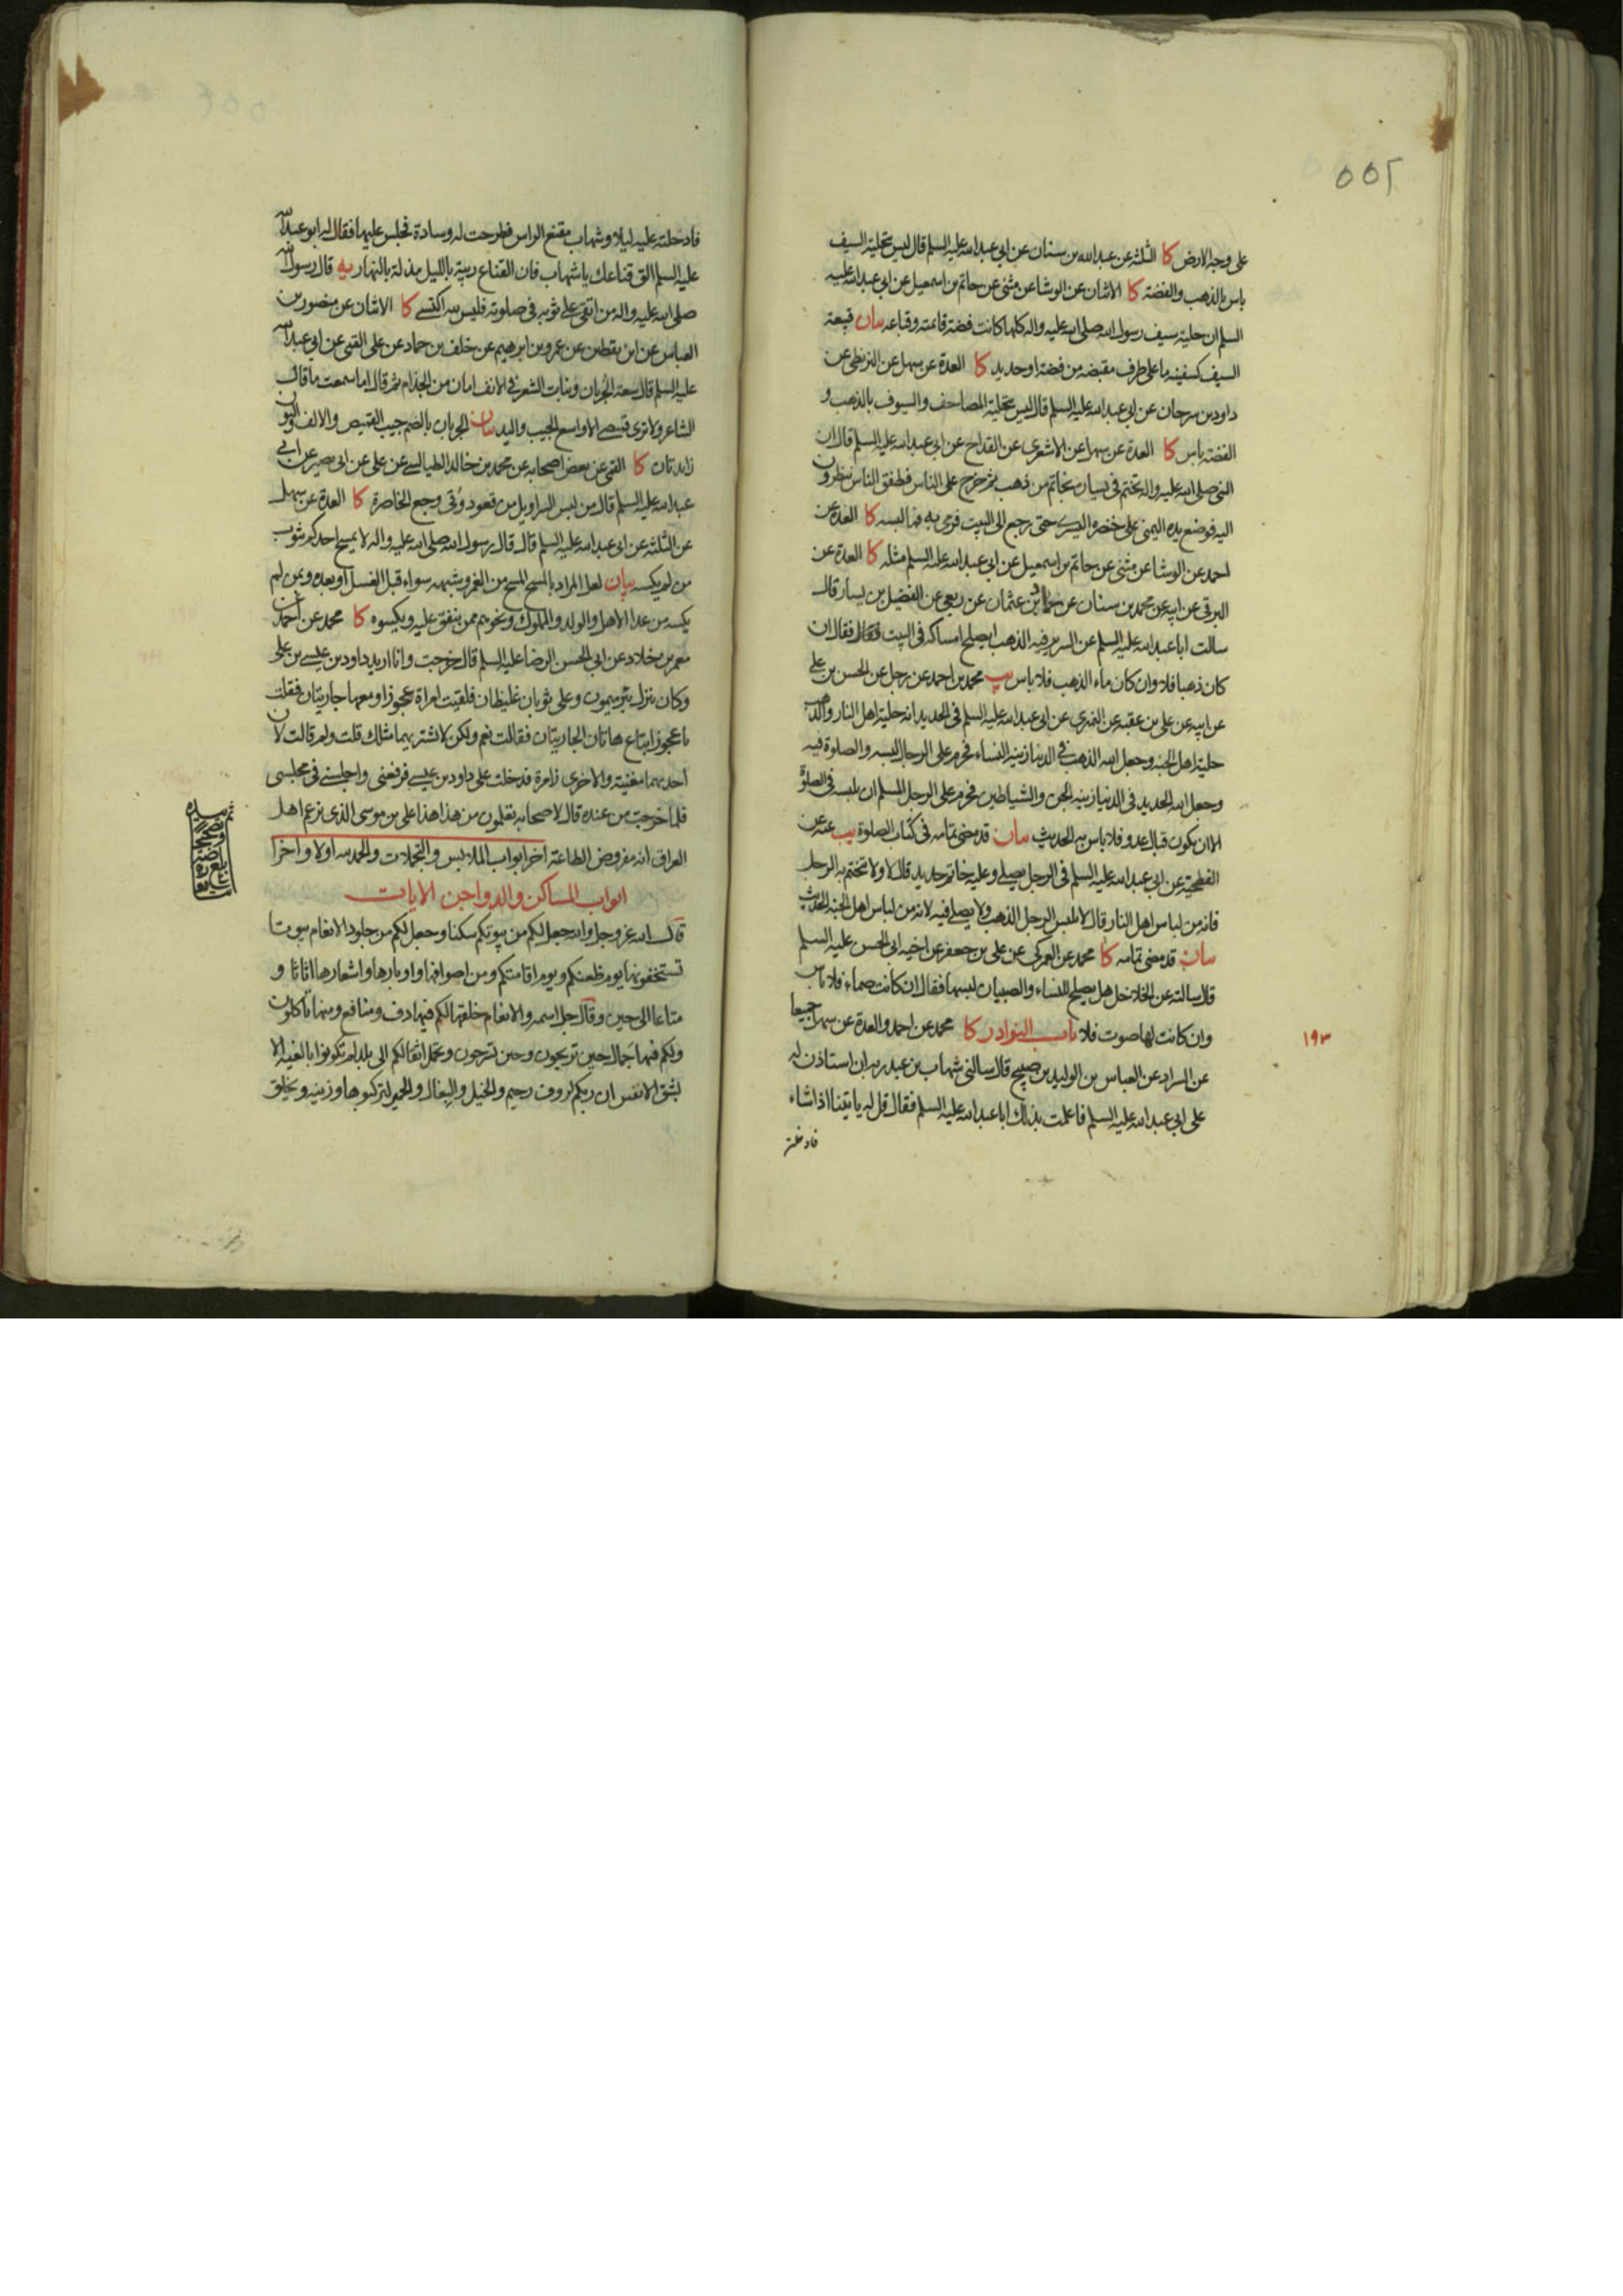 ٥٥٢
على وجه الارض كا الثلثه عن عبد الله بن سنان عن ابي عبد الله عليه السلم قال ليس بتحلية السيف
باس بالذهب والفضة كا الاثنان عن الوشا عن مثنى عن حاتم بن اسمعيل عن ابي عبد الله عليه
السلم ان حلية سيف رسول الله صلى الله عليه واله كلها كانت فضة قائمته وقباعه بيان قبيعة
السيف كسفينه ما على طرف مقبضه من فضة او حديد كا العدة عن سهل عن البزنطى عن
داود بن سرحان عن ابي عبد الله عليه السلم قال ليس بتحلية المصاحف والسيوف بالذهب و
الفضة باس كا العدة عن سهل عن الاشعرى عن القداح عن ابي عبد الله عليه السلم قال ان
النبى صلى الله عليه واله تختم فى يساره بخاتم من ذهب ثم خرج على الناس فطفق الناس ينظرون
اليه فوضع يده اليمنى على خنصره اليسرى حتى رجع الى البيت فرمى به فما لبسه كا العدة عن
احمد عن الوشا عن مثنى عن حاتم بن اسمعيل عن ابي عبد الله عليه السلم مثله كا العدة عن
البرقى عن ابيه عن محمد بن سنان عن حماد بن عثمان عن ربعى عن الفضيل بن يسار قال
سالت ابا عبد الله عليه السلم عن السرير فيه الذهب ايصلح امساكه فى البيت فقال ان
كان ذهبا فلا وان كان ماء الذهب فلا باس يب محمد بن احمد عن رجل عن الحسن بن على
عن ابيه عن على بن عقبه عن النميرى عن ابي عبد الله عليه السلم فى الحديد انه حلية اهل النار والذهب
حلية اهل الجنه وجعل الله الذهب فى الدنيا زينة النساء فحرم على الرجال لبسه والصلوة فيه
وجعل الله الحديد فى الدنيا زينة الجن والشياطين فحرم على الرجل المسلم ان يلبسه فى الصلوة
الا ان يكون قبال عدو فلا باس به الحديث بيان قد مضى تمامه فى كتاب الصلوة يب عنه عن
الفطحية عن ابي عبد الله عليه السلم فى الرجل يصلى وعليه خاتم حديد قال لا ولا تختتم به الرجل
فانه من لباس اهل النار وقال لا يلبس الرجل الذهب ولا يصلى فيه لانه من لباس اهل الجنه الحديث
بيان قد مضى تمامه كا محمد عن العمركى عن على بن جعفر عن اخيه ابي الحسن عليه السلم
قال سالته عن الخلاخل هل يصلح للنساء والصبيان لبسها فقال ان كانت صماء فلا باس
وان كانت لها صوت فلا باب النوادر كا محمد عن احمد والعدة عن سهل جميعا
١٩٣
عن السراد عن العباس بن الوليد بن صبيح قال سالنى شهاب بن عبد ربه ان استاذن له
على ابي عبد الله عليه السلم فاعلمت بذلك ابا عبد الله عليه السلم فقال قل له ياتينا اذا شاء
فادخلته
فادخلته عليه ليلا وشهاب مقنع الراس فطرحت له وسادة فجلس عليها فقال له ابو عبد الله
عليه السلم الق قناعك يا شهاب فان القناع ريبة بالليل مذلة بالنهار يه قال رسول الله
صلى الله عليه واله من اتقى على ثوبه فى صلوته فليس لله اكتسى كا الاثنان عن منصور بن
العباس عن ابن يقطين عن عمرو بن ابرهيم عن خلف بن حماد عن على القمى عن ابي عبد الله
عليه السلم قال سعة الجربان ونبات الشعر فى الانف امان من الجذام ثم قال اما سمعت ما قال
الشاعر ولا ترى قميصى الا واسع الجيب واليد بيان الجربان بالضم جيب القميص والالف والنون
زايدتان كا القمى عن بعض اصحابه عن محمد بن خالد الطيالسى عن على عن ابى بصير عن ابى
عبد الله عليه السلم قال من لبس السراويل من قعود وقى وجع الخاصرة كا العدة عن سهل
عن الثلثه عن ابى عبد الله عليه السلم قال قال رسول الله صلى الله عليه واله لا يمسح احدكم بثوب
من لم يكسه بيان لعل المراد بالمسح المسح من الغمر وشبهه سواء قبل الغسل او بعده وبمن لم
يكسه من عدا الاهل والولد والمملوك ونحوهم ممن ينفق عليه ويكسوه كا محمد عن احمد عن
معمر بن خلاد عن ابى الحسن الرضا عليه السلم قال خرجت وانا اريد داود بن عيسى بن على
وكان ينزل بئر ميمون وعلى ثوبان غليظان فلقيت امراة عجوزا ومعها جاريتان فقلت
يا عجوز اتباع هاتان الجاريتان فقالت نعم ولكن لا يشتريهما مثلك قلت ولم قالت لان
احديهما مغنية والاخرى زامرة فدخلت على داود بن عيسى فرفعنى واجلسنى فى مجلسى
فلما خرجت من عنده قال لاصحابه تعلمون من هذا هذا على بن موسى الذى يزعم اهل
العراق انه مفروض الطاعة اخر ابواب الملابس والتجملات والحمد لله اولا واخرا
ابواب المساكن والدواجن الايات
قال الله عز وجل والله جعل لكم من بيوتكم سكنا وجعل لكم من جلود الانعام بيوتا
تستخفونها يوم ظعنكم ويوم اقامتكم ومن اصوافها واوبارها واشعارها اثاثا و
متاعا الى حين وقال جل اسمه والانعام خلقها لكم فيها دف ومنافع ومنها تاكلون
ولكم فيها جمال حين تريحون وحين تسرحون وتحمل اثقالكم الى بلد لم تكونوا بالغيه الا
بشق الانفس ان ربكم لروف رحيم والخيل والبغال والحمير لتركبوها وزينة ويخلق